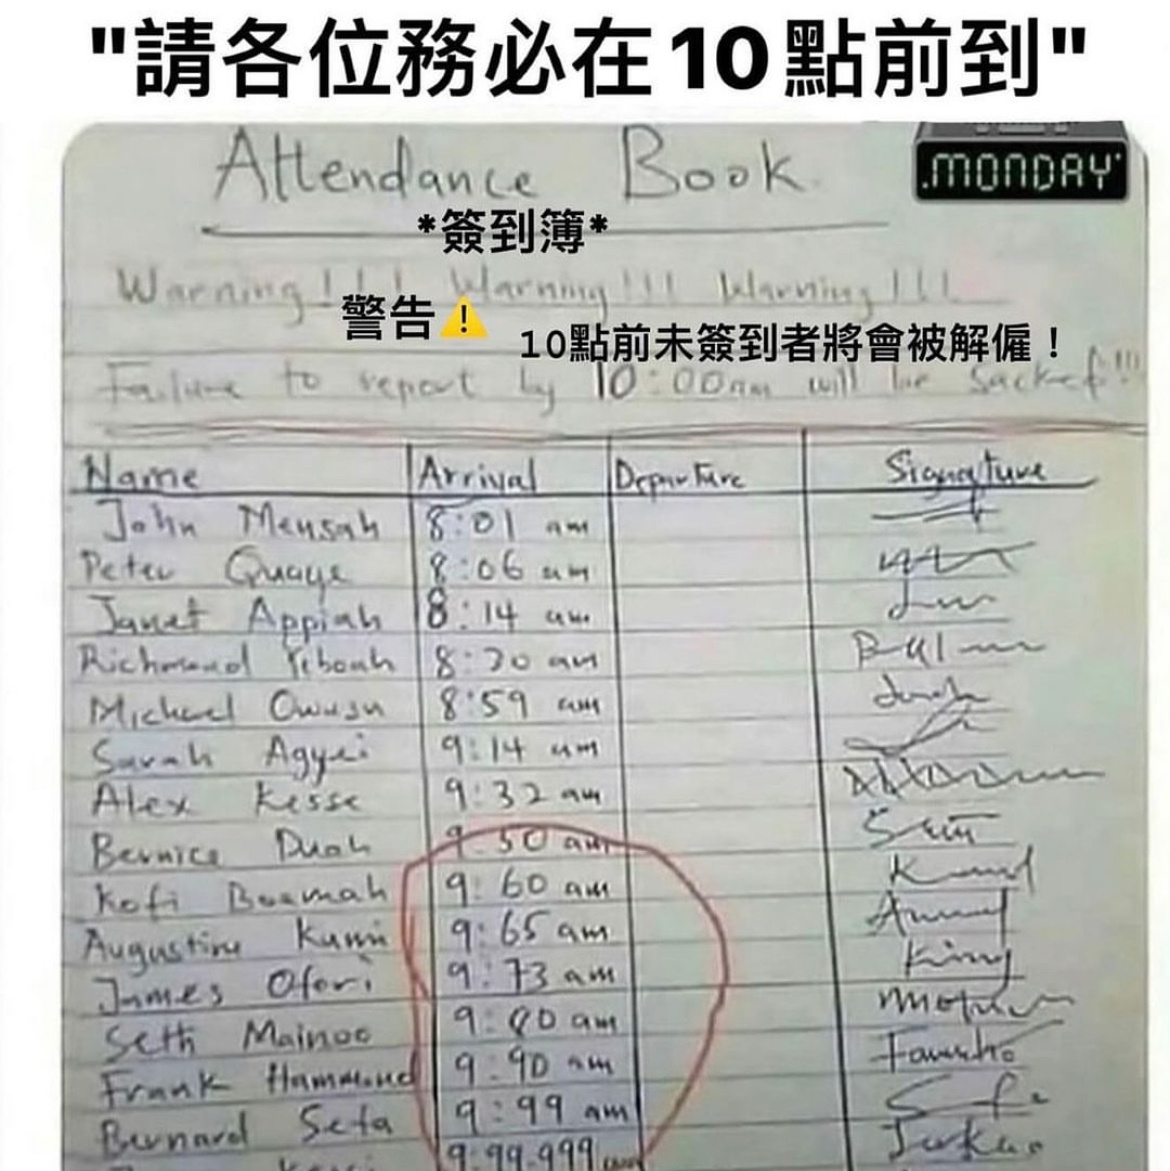 "請各位務必在10點前到"
Attendance Book
.MONDAY
*簽到簿*
Warning!!!! Warning!!! Warning!!!
警告⚠️
10點前未簽到者將會被解僱！
Failure to report by 10:00am will be sacked!!!
Name Arrival Departure Signature
John Mensah 8:01 am
Peter Quaye 8:06 am
Janet Appiah 8:14 am
Richmond Yeboah 8:30 am
Michael Owusu 8:59 am
Sarah Agyei 9:14 am
Alex Kesse 9:32 am
Bernice Duah 9:50 am
Kofi Boamah 9:60 am
Augustine 9:65 am
James Ofori 9:73 am King
Seth Mainoo 9:80 am
Frank Hammond 9:90 am
Bernard Sefa 9:99 am
9:99.999 am